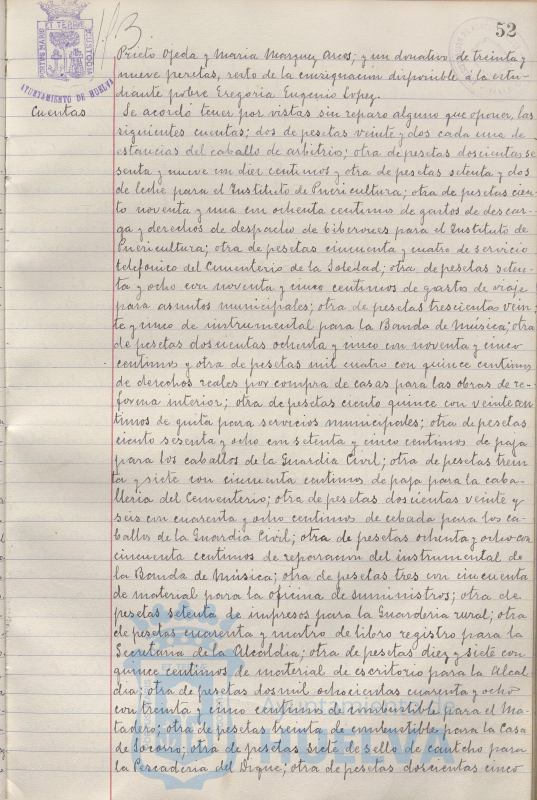 52
Prieto Ojeda y Maria Marquez Arcos; y un donativo de treinta y
nueve pesetas, resto de la consignacion disponible á la estu-
diante pobre Gregoria Eugenio Lopez.
AYUNTAMIENTO DE HUELVA
Cuentas
Se acordó tener por vistas sin reparo alguno que oponer, las
siguientes cuentas; dos de pesetas veinte y dos cada una de
estancias del caballo de arbitrio; otra de pesetas doscientas se
senta y nueve con diez centimos y otra de pesetas setenta y dos
de leche para el Instituto de Puericultura; otra de pesetas cien-
to noventa y una con ochenta centimos de gastos de descar-
ga y derechos de despacho de biberones para el Instituto de
Puericultura; otra de pesetas cincuenta y cuatro de servicio
telefonico del Cementerio de la Soledad; otra de pesetas seten-
ta y ocho con noventa y cinco centimos de gastos de viaje
para asuntos municipales; otra de pesetas trescientas vein-
te y cinco de instrumental para la Banda de Música; otra
de pesetas doscientas ochenta y cinco con noventa y cinco
centimos y otra de pesetas mil cuatro con quince centimos
de derechos reales por compra de casas para las obras de re-
forma interior; otra de pesetas ciento quince con veinte cen
timos de guita para servicios municipales; otra de pesetas
ciento sesenta y ocho con setenta y cinco centimos de paja
para los caballos de la Guardia Civil; otra de pesetas trein
ta y siete con cincuenta centimos de paja para la caba-
lleria del Cementerio; otra de pesetas doscientas veinte y
seis con cuarenta y ocho centimos de cebada para los ca-
ballos de la Guardia Civil; otra de pesetas ochenta y ocho con
cincuenta centimos de reparacion del instrumental de
la Banda de Música; otra de pesetas tres con cincuenta
de material para la oficina de suministros; otra de
pesetas setenta de impresos para la Guarderia rural; otra
de pesetas cuarenta y cuatro de libro registro para la
Secretaria de la Alcaldia; otra de pesetas diez y siete con
quince centimos de material de escritorio para la Alcal
dia; otra de pesetas dos mil ochocientas cuarenta y ocho
con treinta y cinco centimos de combustible para el Ma-
tadero; otra de pesetas treinta de combustible para la Casa
de Socorro; otra de pesetas siete de sello de cautcho para
la Pescaderia del Dique; otra de pesetas doscientas cinco
Ayuntamiento de
HUELVA